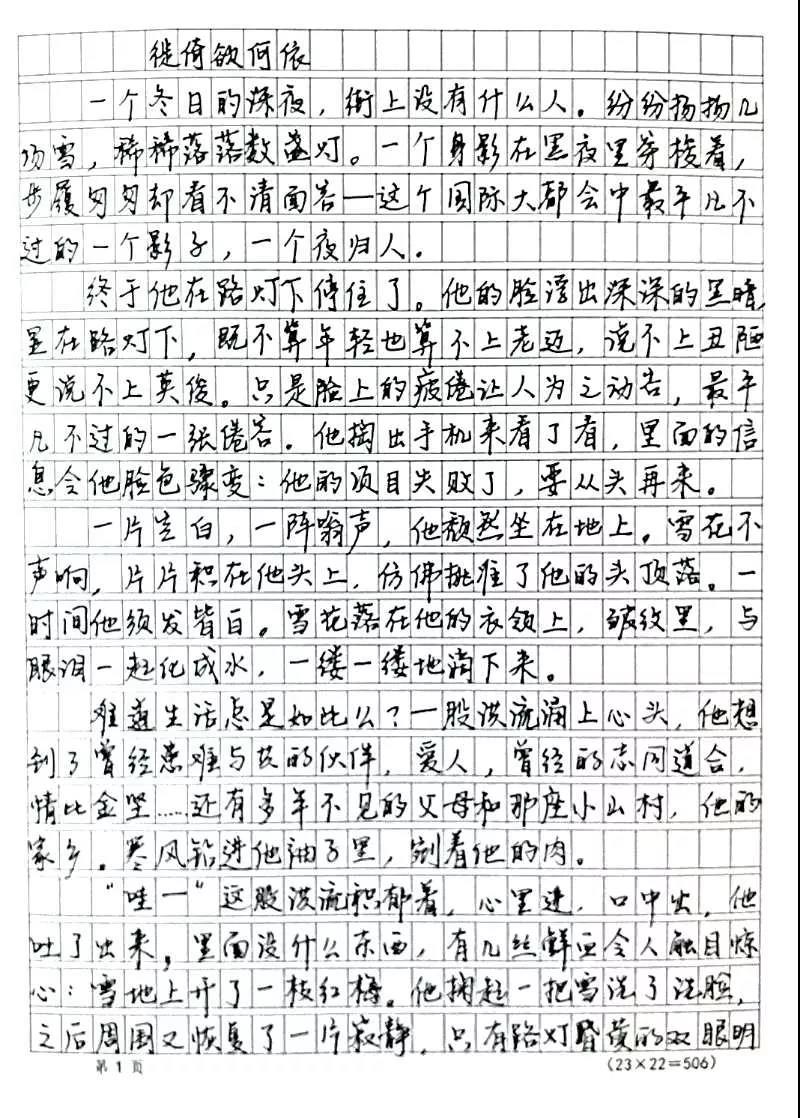 徙倚欲何依
一个冬日的深夜，街上没有什么人。纷纷扬扬几
场雪，稀稀落落数盏灯。一个身影在黑夜里穿梭着，
步履匆匆却看不清面容—这个国际大都会中最平凡不
过的一个影子，一个夜归人。
终于他在路灯下停住了。他的脸浮出深深的黑暗，
呈在路灯下，既不算年轻也算不上老迈，说不上丑陋
更说不上英俊。只是脸上的疲倦让人为之动容，最平
凡不过的一张倦容。他掏出手机来看了看，里面的信
息令他脸色骤变：他的项目失败了，要从头再来。
一片空白，一阵嗡声，他颓然坐在地上。雪花不
声响，片片积在他头上，仿佛挑准了他的头顶落。一
时间他须发皆白。雪花落在他的衣领上，皱纹里，与
眼泪一起化成水，一缕一缕地淌下来。
难道生活总是如此么？一股洪流涌上心头，他想
到了曾经患难与共的伙伴，爱人，曾经的志同道合，
情比金坚……还有多年不见的父母和那座小山村，他的
家乡。寒风钻进他袖子里，割着他的肉。
“哇—”这股洪流积郁着，心里进，口中出，他
吐了出来，里面没什么东西，有几丝鲜血令人触目惊
心：雪地上开了一枝红梅。他掬起一把雪洗了洗脸，
之后周围又恢复了一片寂静，只有路灯昏黄的双眼明
第1页
(23×22=506)